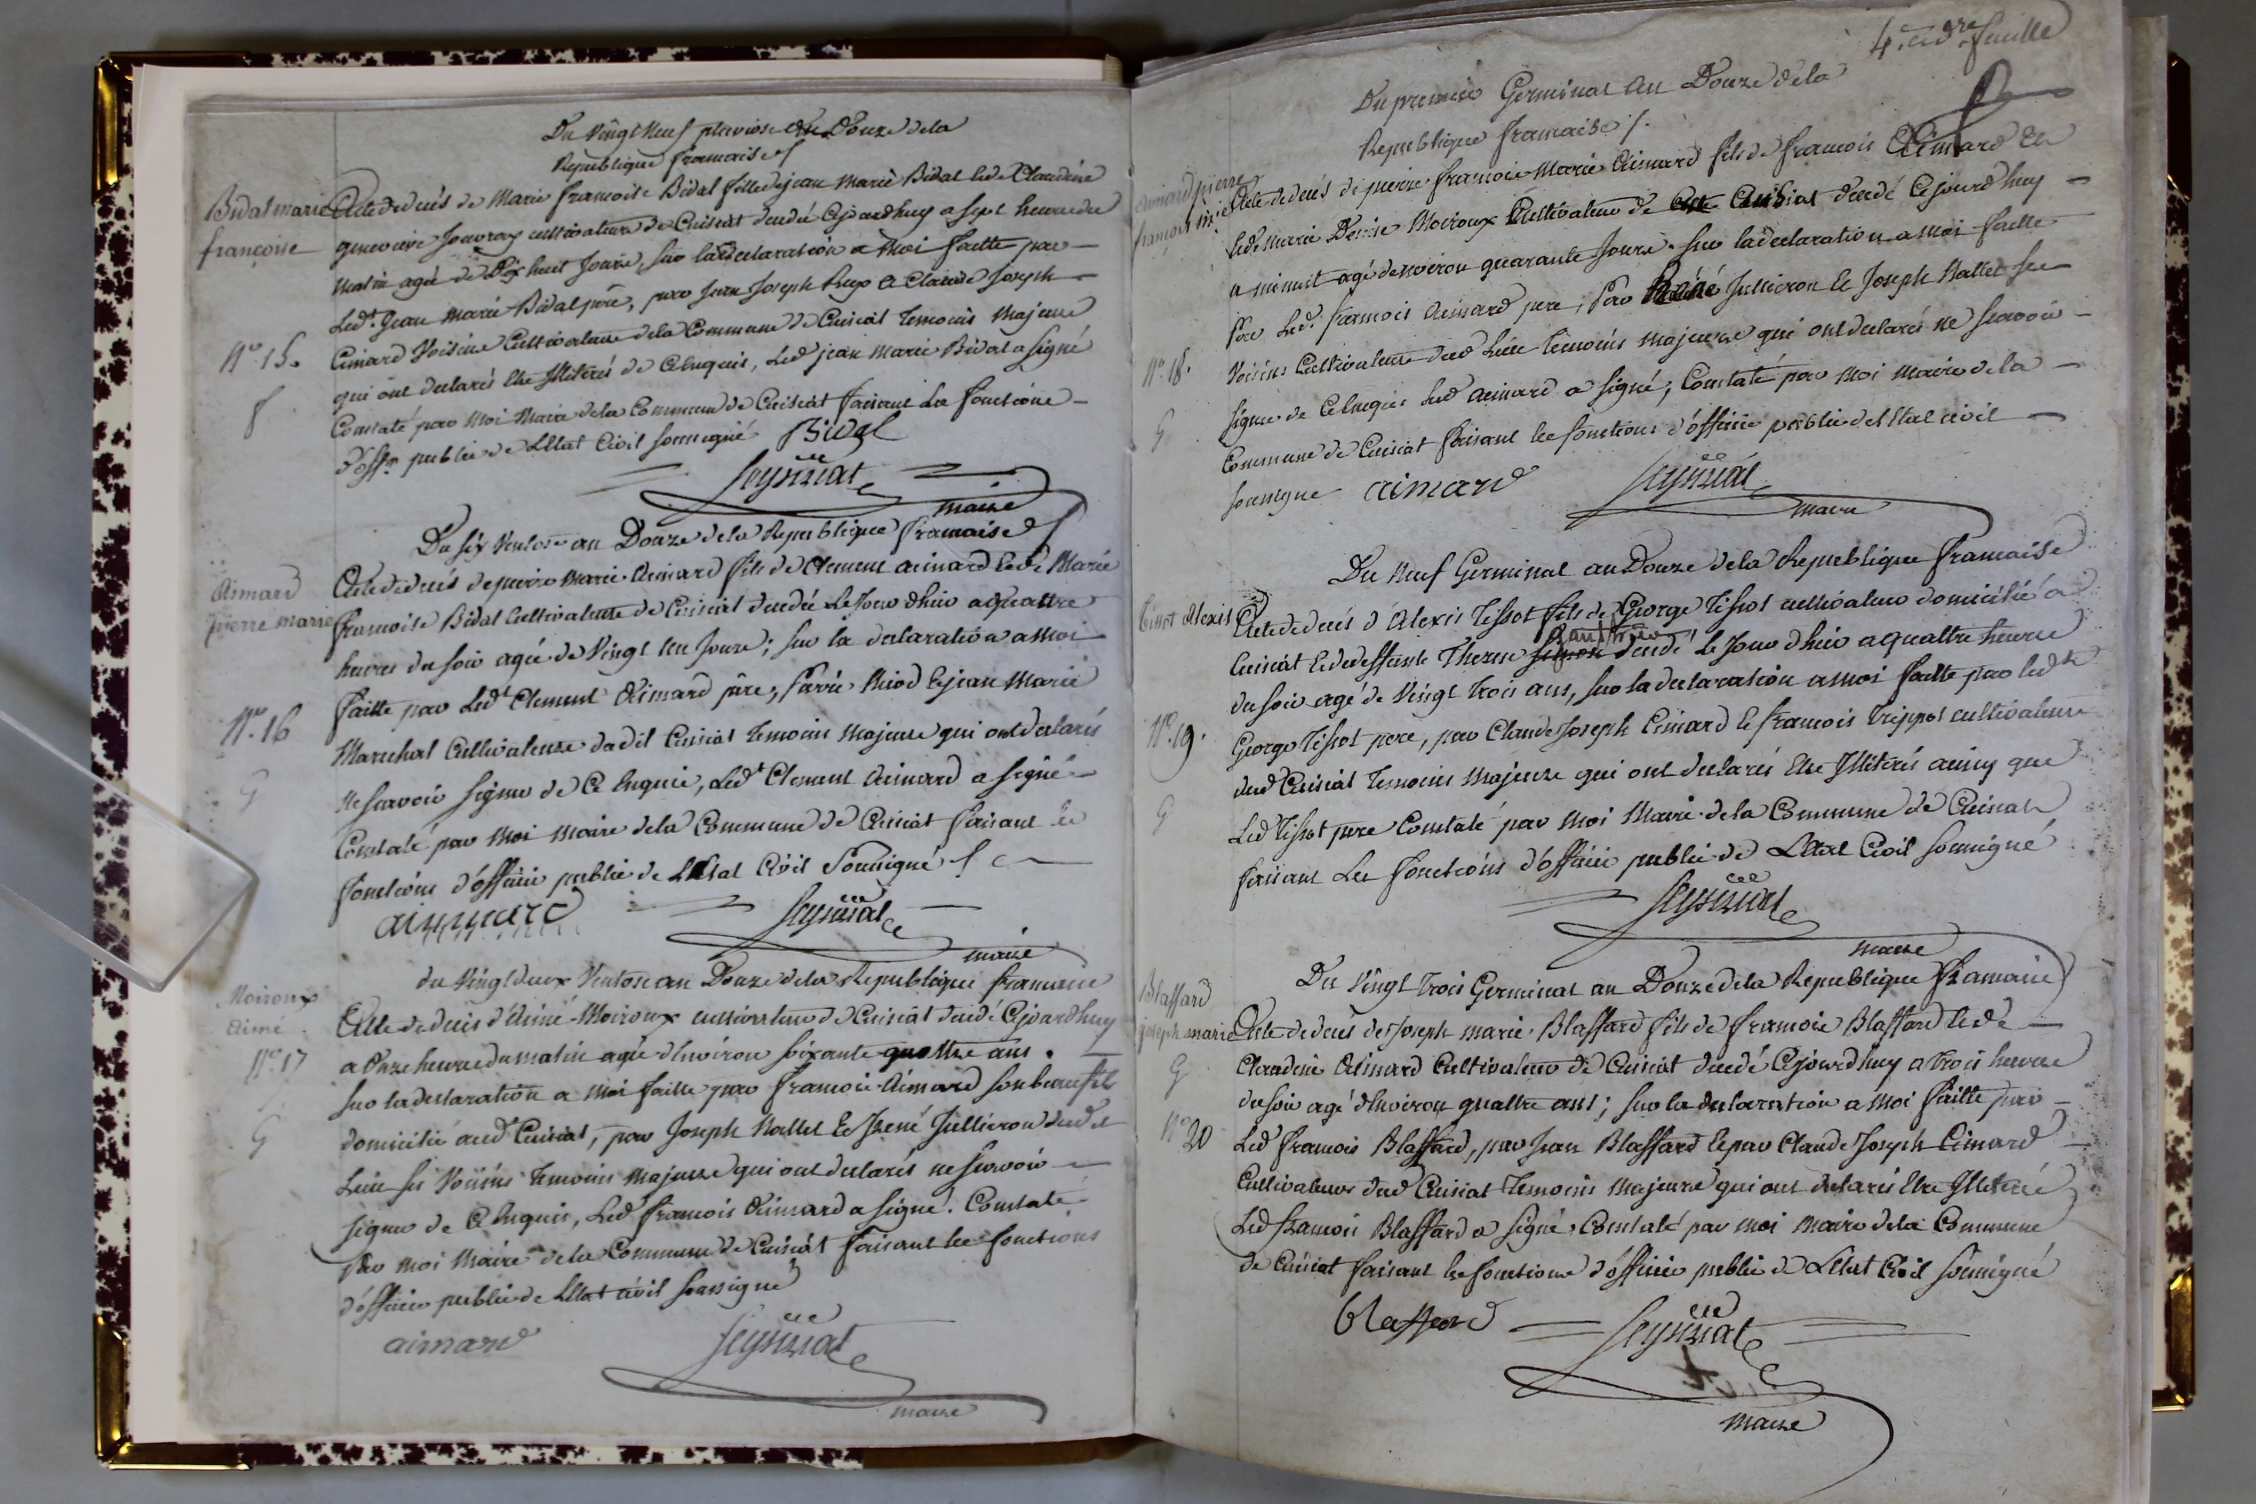 Du vingt neuf pluviose an Douze de la
Republique francaise
Bidal marie
françoise
Acte de decés de Marie francoise Bidal fille de jean Marie Bidal & de Claudine
genevieve Jouvray cultivateurs de Cuisiat decedée cejourdhuy a sept heures du
matin agée de Dix huit Jours, sur la declaration a Moi faitte par
Led.t Jean Marie Bidal pere, par Jean Joseph Ruyo & Claude Joseph
Cimard Voisins Cultivateurs de la Commune de Cuisiat temoins Majeurs
N.o 15.
qui ont declarés Etre Illiterés de Ce enquis, Led jean Marie Bidal a signé
Constaté par Moi Maire de la Commune de Cuisiat faisant Les fonctions
d'offer public de L'Etat Civil soussigné Bidal
maire
Du six Ventose an Douze de la Republique francaise
Aimard
pierre marie
Acte de decés de pierre Marie Aimard fils de Clement aimard & de Marie
francoise Bidal Cultivateurs de Cuisiat decedé Le Jour dhui a quattre
heures du soir agé de Vingt un Jours; sur la declaration a moi
faitte par Led.t Clement Aimard pere, pierre Niod & jean Marie
N.o 16
Marechal Cultivateurs dudit Cuisiat temoins Majeurs qui ont declarés
G
Ne scavoir signer de Ce Enquis, Led.t Clement Aimard a signé
Constaté par Moi Maire de la Commune de Cuisiat faisant les
fonctions d'officier public de L'Etat Civil Soussigné
aimard
maire
du vingt deux Ventose an Douze de la Republique francaise
Moiroux
Aimé
Acte de decés d'Aimé Moiroux cultivateur de Cuisiat decedé Cejourdhuy
N.o 17
a Onze heures du matin agé d'Environ soixante quattre ans.
sur la declaration a Moi faitte par francois Aimard son beau fils
G
domicilié aud Cuisiat, par Joseph Nallet & René Jullieron dudit
Lieu ses Voisins temoins Majeurs qui ont declarés ne scavoir
signer de Ce Enquis, Led francois Aimard a signé. Constaté
par Moi Maire de la Commune de Cuisiat faisant les fonctions
d'officier public de L'Etat civil soussigné
aimard
maire
4.e feuille
Du premier Germinal an Douze de la
Republique francaise
aimard pierre
françois Marie
Acte de decés de pierre francois Marie Aimard fils de francois Aimard &
de Marie Denise Moiroux Cultivateurs de Cuisiat decedé Cejourdhuy
a minuit agé denviron quarante Jours. sur la declaration a moi faitte
par Led. francois Aimard pere, par René Jullieron & Joseph Nallet ses
N.o 18.
Voisins Cultivateurs dud Lieu temoins majeurs qui ont declarés ne scavoir
G
signer de Ce Enquis Led Aimard a signé, Constaté par Moi Maire de la
Commune de Cuisiat faisant les fonctions d'officier public de L'Etat civil
soussigné aimard
maire
Du Neuf Germinal an Douze de la Republique francaise
Tissot Alexis
Acte de decés d'Alexis Tissot fils de George Tissot cultivateur domicilié a
Cuisiat & de deffunte Therese decedé Le Jour dhui a quattre heures
du soir agé de Vingt trois ans, sur la declaration a moi faitte par led.t
N.o 19.
George Tissot pere, par Claude Joseph Cimard & francois Trippoz cultivateurs
G
dud Cuisiat temoins Majeurs qui ont declarés Etre Illiterés ainsy que
Led Tissot pere Constaté par Moi Maire de la Commune de Cuisiat
faisant Les fonctions d'officier public de L'Etat Civil soussigné
maire
Du Vingt trois Germinal an Douze de la Republique francaise
Blaffard
joseph marie
Acte de decés de Joseph marie Blaffard fils de francois Blaffard & de
G
Claudine Aimard Cultivateurs de Cuisiat decedé Cejourdhuy a trois heures
du soir agé d'Environ quattre ans; sur la declaration a Moi faitte par
N.o 20
Led francois Blaffard, par Jean Blaffard & par Claude Joseph Cimard
Cultivateurs dud Cuisiat temoins majeurs qui ont declarés Etre Illiteré
Led francois Blaffard a signé. Constaté par moi Maire de la Commune
de Cuisiat faisant les fonctions d'officier public de L'Etat Civil soussigné
blaffard
maire